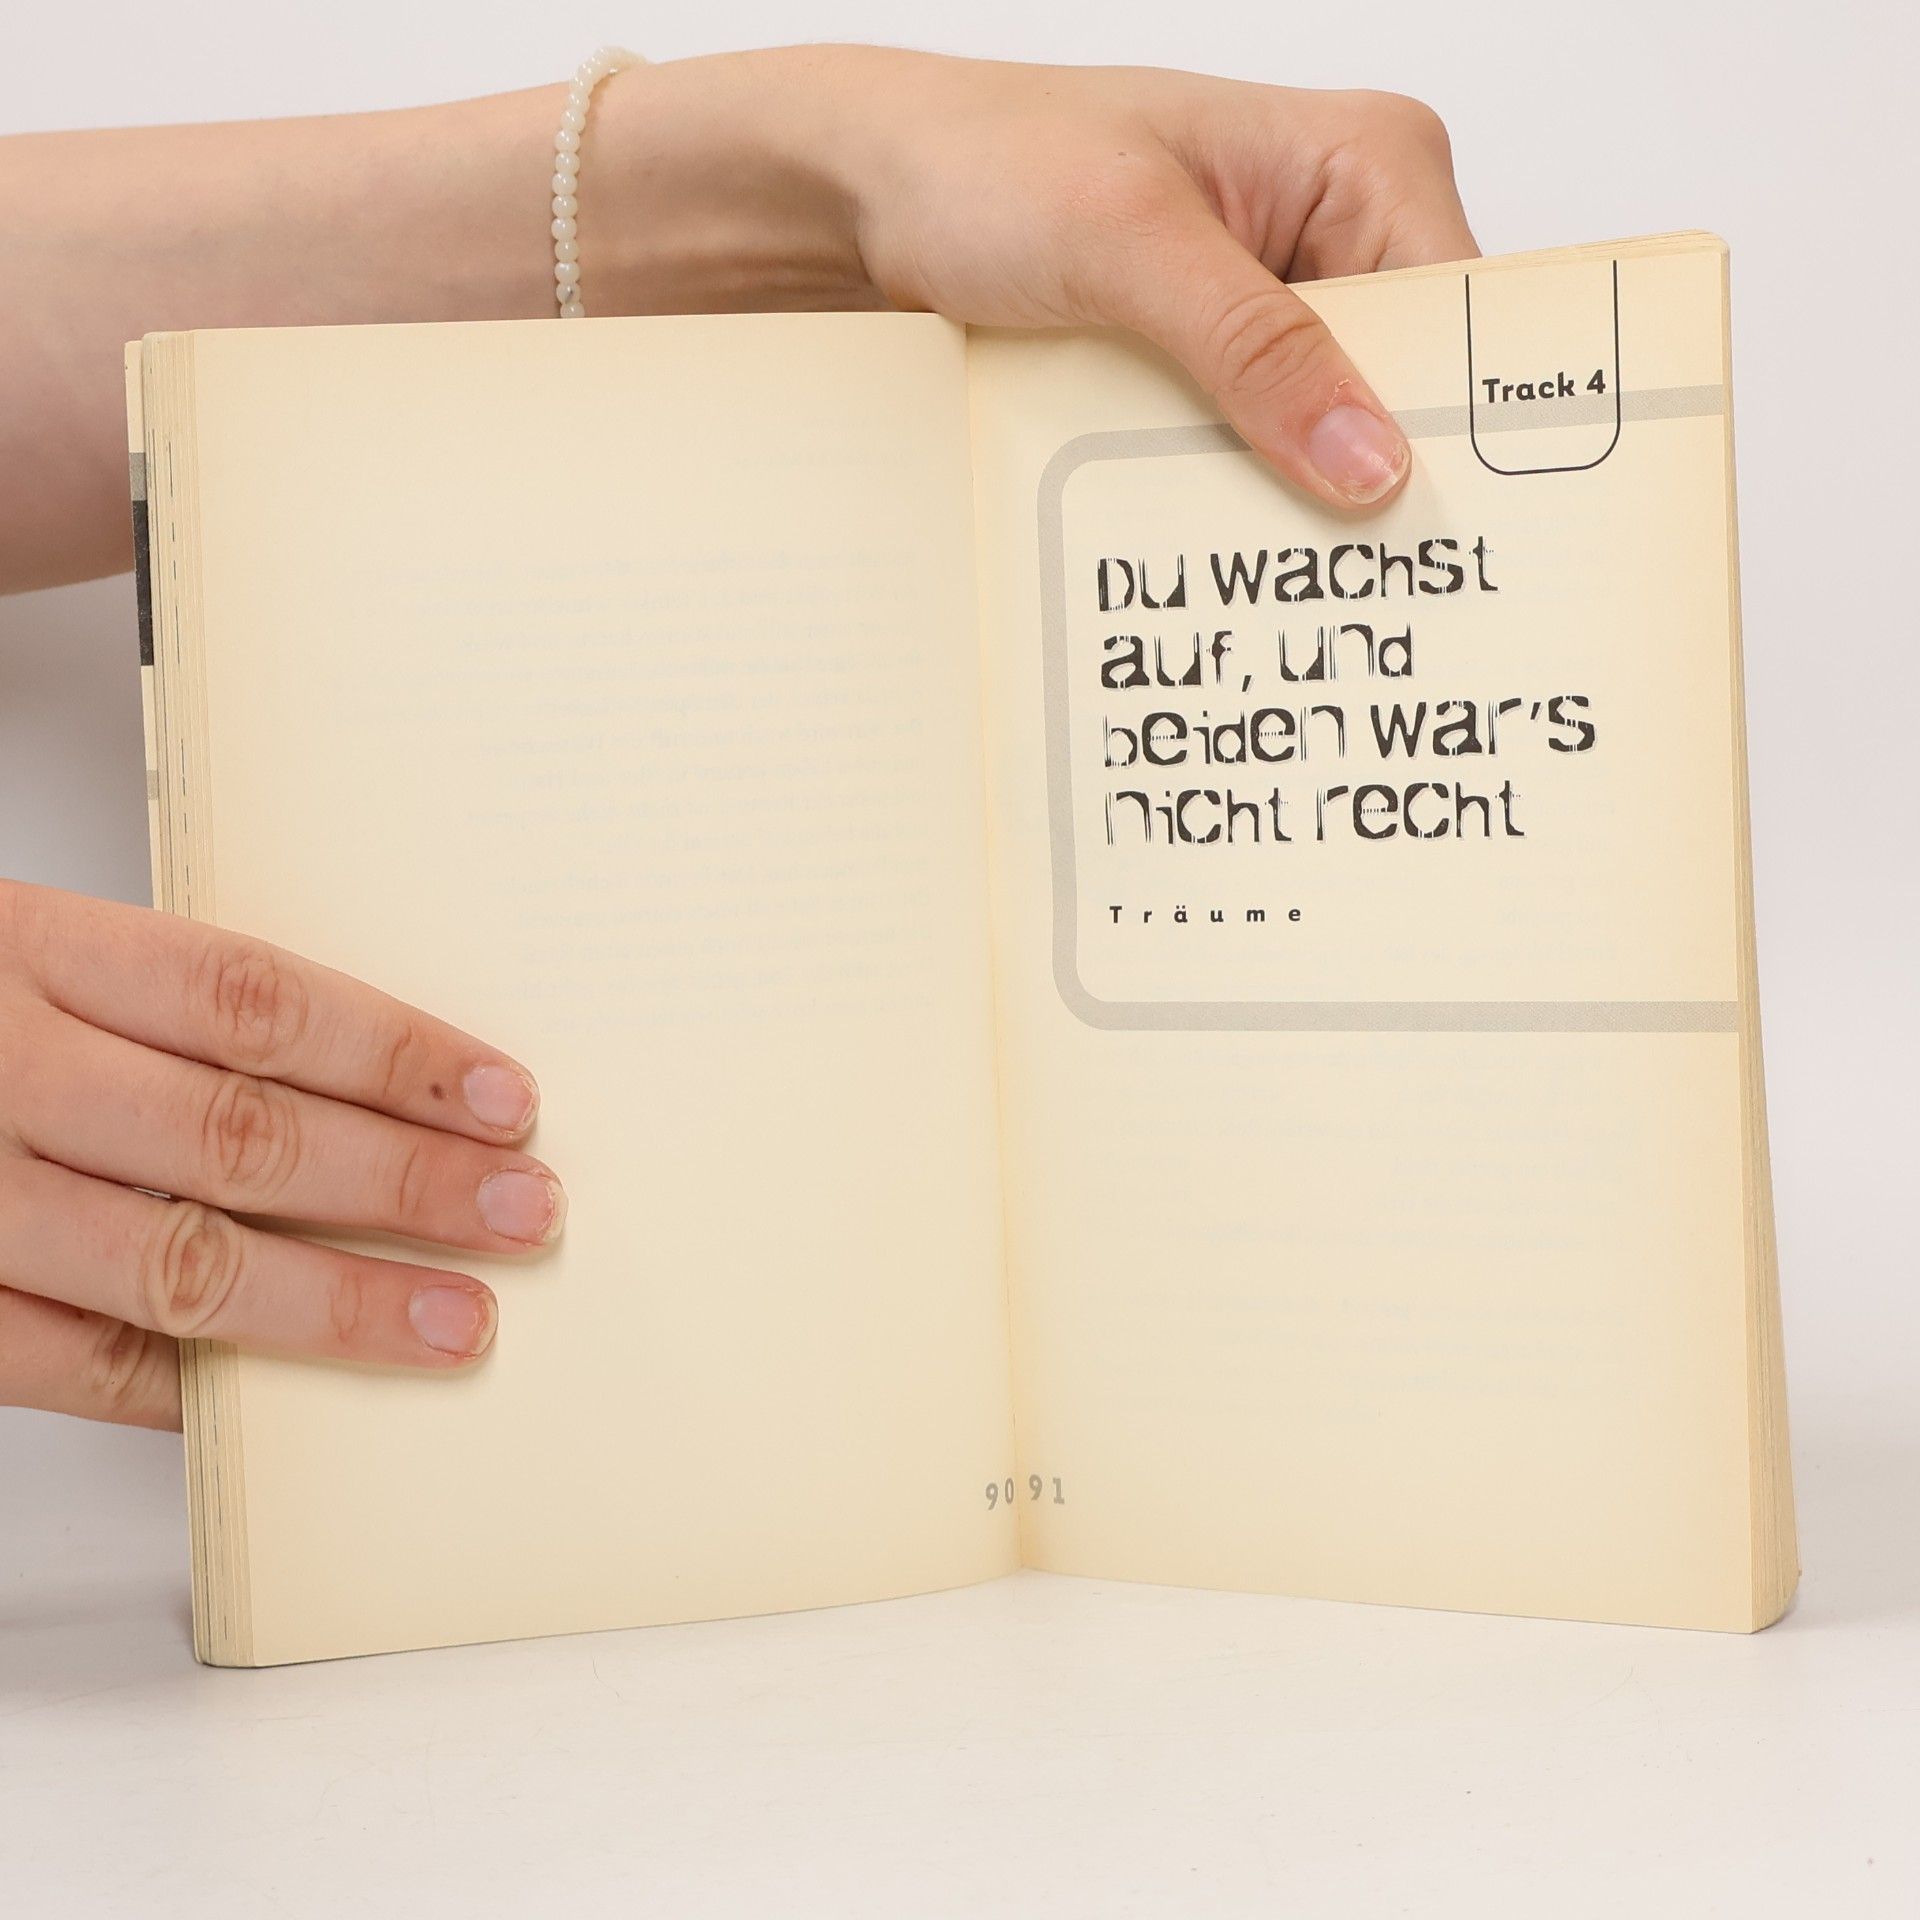 Track 4
Du wachst
auf, und
beiden war's
nicht recht
Träume
90 91